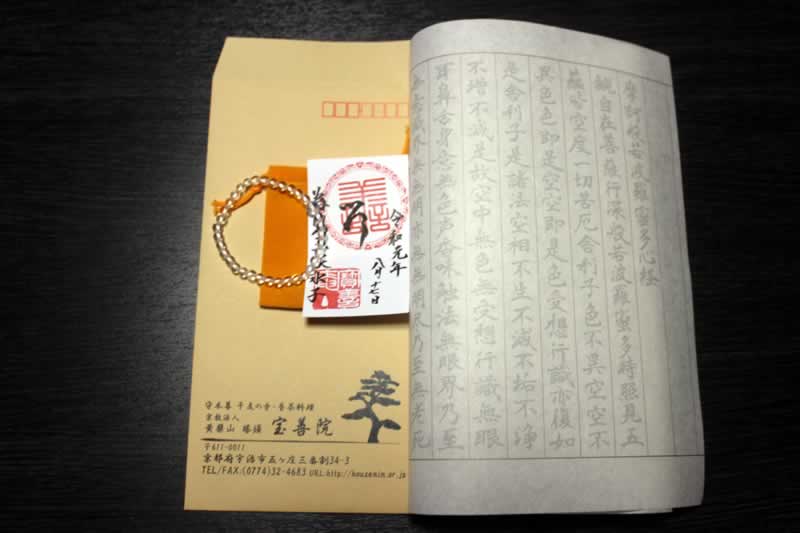 摩訶般若波羅蜜多心経
観自在菩薩行深般若波羅蜜多時照見五
蘊皆空度一切苦厄舎利子色不異空空不
異色色即是空空即是色受想行識亦復如
是舎利子是諸法空相不生不滅不垢不浄
不増不減是故空中無色無受想行識無眼
耳鼻舌身意無色声香味触法無眼界乃至
無意識界無無明亦無無明尽乃至無老死
令和元年
八月十七日
守本尊 干支の寺・普茶料理
宗教法人
黄檗山 塔頭 宝善院
〒611-0011
京都府宇治市五ヶ庄三番割34-3
TEL/FAX:(0774)32-4683 URL:http://houzenin.or.jp